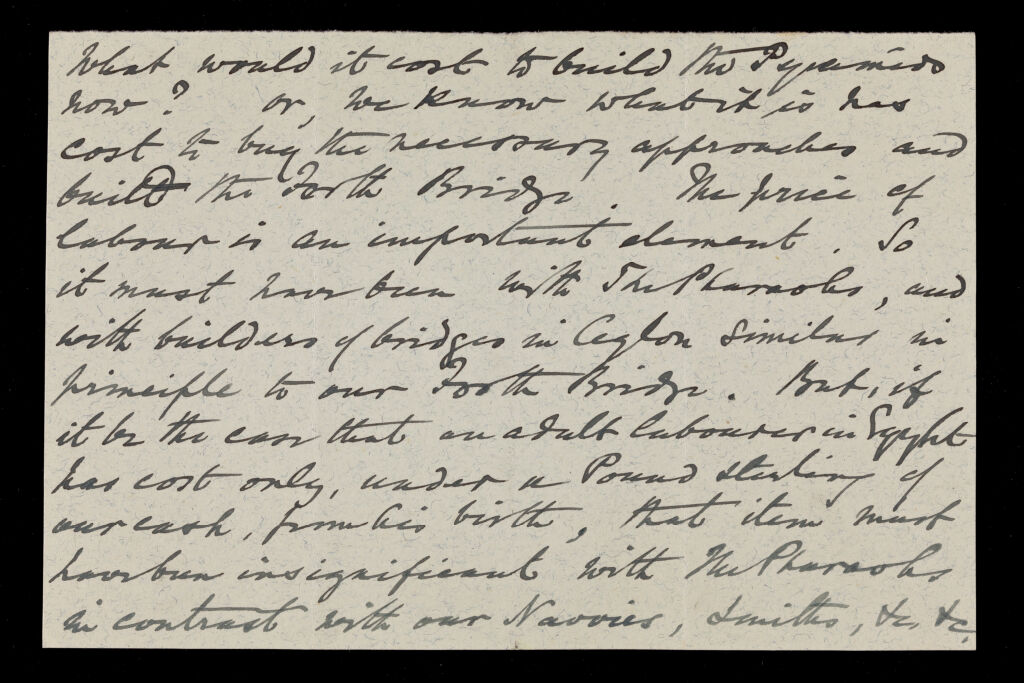 What would it cost to build the Pyramids
now? or, we know what it is has
cost to buy the necessary approaches and
build the Forth Bridge. The price of
labour is an important element. So
it must have been with The Pharaohs, and
with builders of bridges in Ceylon similar in
principle to our Forth Bridge. But, if
it be the case that an adult labourer in Egypt
has cost only, under a Pound sterling of
our cash, from his birth, that item must
have been insignificant with The Pharaohs
in contrast with our Navvies, Smiths, &c. &c.